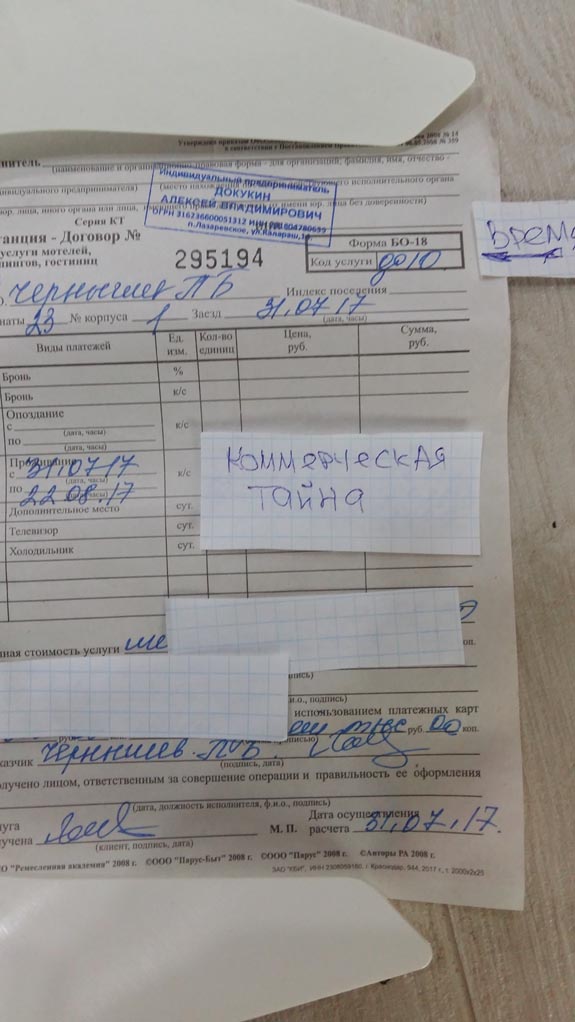 Утвержден приказом
2008 № 14
в соответствии с Постановлением Правительства
2008 № 359
нитель
(наименование и организационно-правовая форма - для организации; фамилия, имя, отчество -
дивидуального предпринимателя) (место нахождения исполнительного органа
юр. лица, иного органа или лица, имеющего право действовать от имени юр. лица без доверенности)
Индивидуальный предприниматель
ДОКУКИН
АЛЕКСЕЙ ВЛАДИМИРОВИЧ
ОГРН 316236600051312 ИНН
п.Лазаревское, ул.Калараш,
Серия КТ
танция - Договор №
услуги мотелей,
пингов, гостиниц
295194
Форма БО-18
Код услуги
ВРЕМ
Чернышев П Б
Индекс поселения
наты 23 № корпуса 1 Заезд 31.07 17
(дата, часы)
Виды платежей Ед. изм. Кол-во единиц Цена, руб. Сумма, руб.
Бронь %
Бронь к/с
Опоздание
с к/с
(дата, часы)
по
(дата, часы)
Проживание
с 31.07 17 к/с
(дата, часы)
по 22 08.17
(дата, часы)
Дополнительное место сут.
Телевизор сут.
Холодильник сут.
КОММЕРЧЕСКАЯ
ТАЙНА
ная стоимость услуги ше
коп.
пись)
и.о., подпись)
использованием платежных карт
руб. 00 коп.
писью)
казчик Чернышев П.Б.
(подпись, дата)
олучено лицом, ответственным за совершение операции и правильность ее оформления
(дата, должность исполнителя, ф.и.о., подпись)
луга
лучена
(клиент, подпись, дата)
М. П.
Дата осуществления
расчета 31.07.17.
О "Ремесленная академия" 2008 г. ©ООО "Парус-Быт" 2008 г. ©ООО "Парус" 2008 г. ©Авторы РА 2008 г.
ЗАО "КБИ", ИНН 2308059180, г. Краснодар, 944, 2017 г., т. 2000x2x25